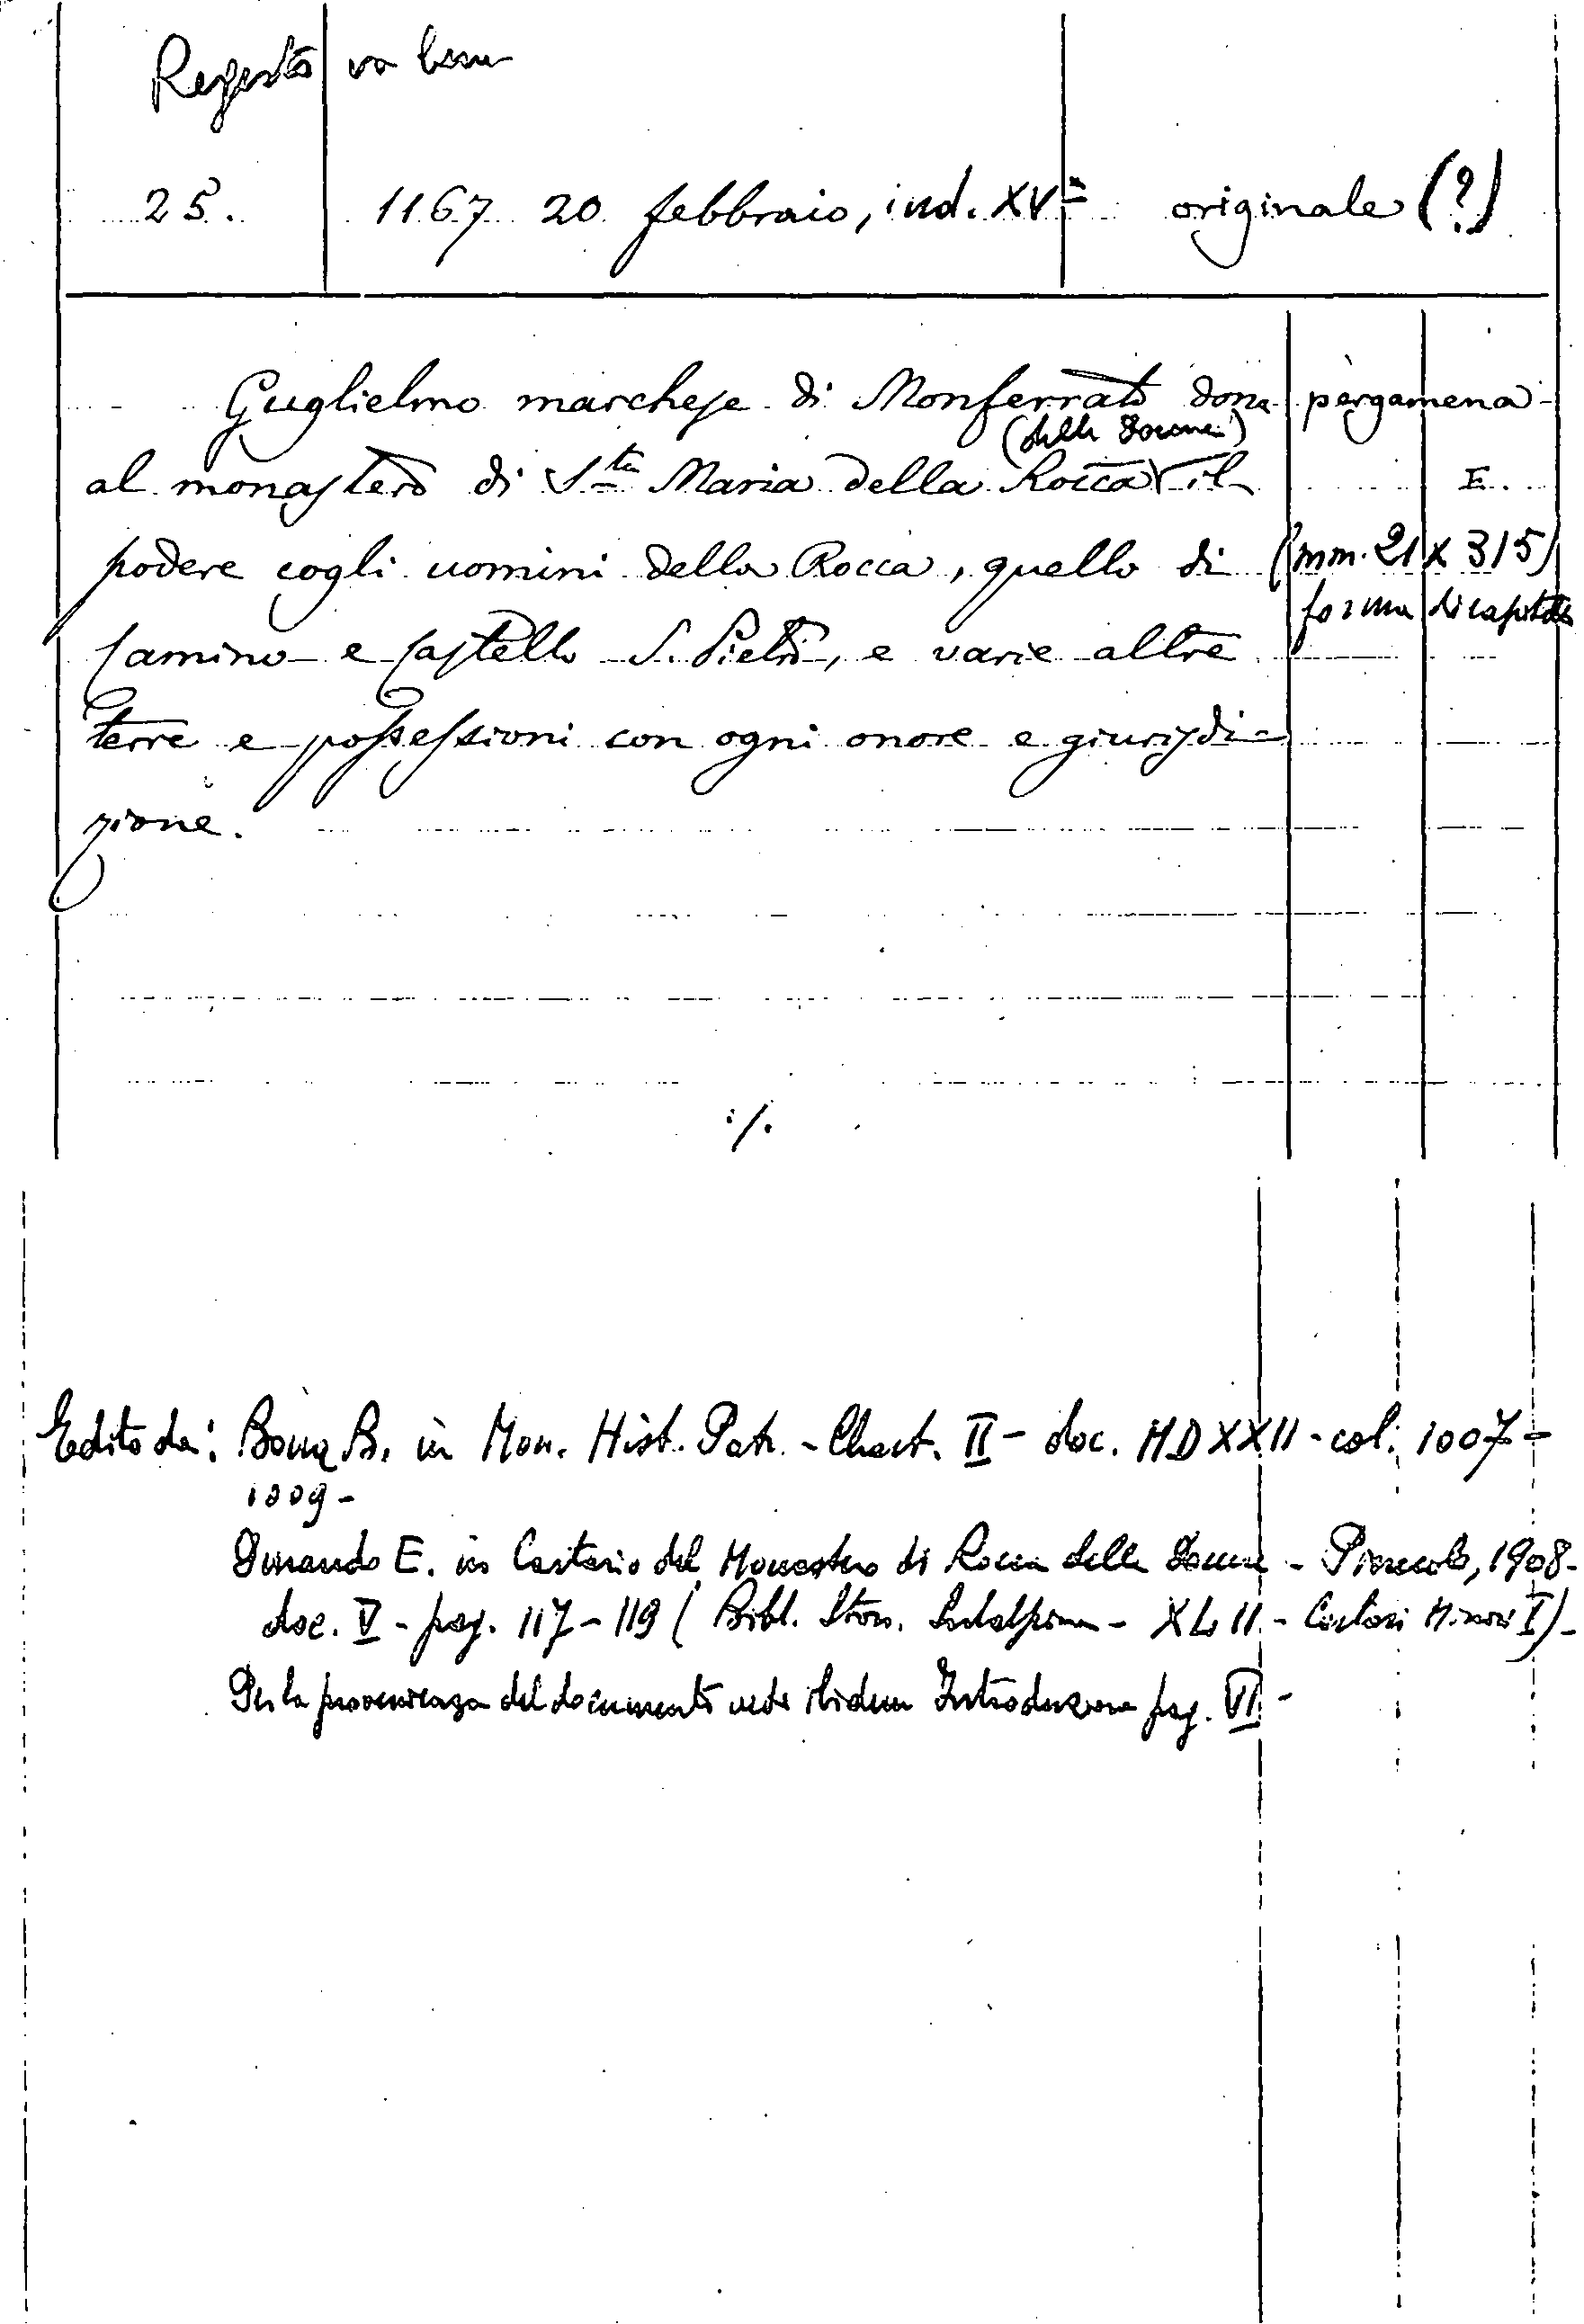 Regesto va bene
25. 1167 20 febbraio, ind. XVª originale (?)
Guglielmo marchese di Monferrato dona pergamena
(delle Donne)
al monastero di S.ta Maria della Rocca il E.
podere cogli uomini della Rocca, quello di (mm. 21 x 315)
forma di capitolo
Camino e Castello S. Pietro, e varie altre
terre e possessioni con ogni onore e giurisdi-
zione.
./.
Edito da: Bona B. in Mon. Hist. Patr. - Chart. II - doc. MDXXII - col. 1007 -
1009 -
Durando E. in Cartario del Monastero di Rocca delle Donne - Pinerolo, 1908 -
doc. V - pag. 117 - 119 ( Bibl. Stor. Subalpina - XLII - Cartari Minori I) -
Per la provenienza del documento vedi ibidem Introduzione pag. VI -